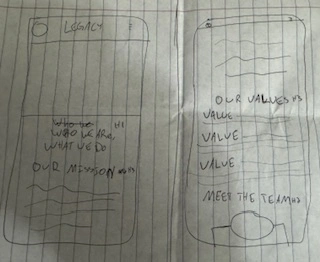 LEGACY
Who we H1
WHO WE ARE
WHAT WE DO
OUR MISSION H3
OUR VALUES H3
VALUE
VALUE
VALUE
MEET THE TEAM H3